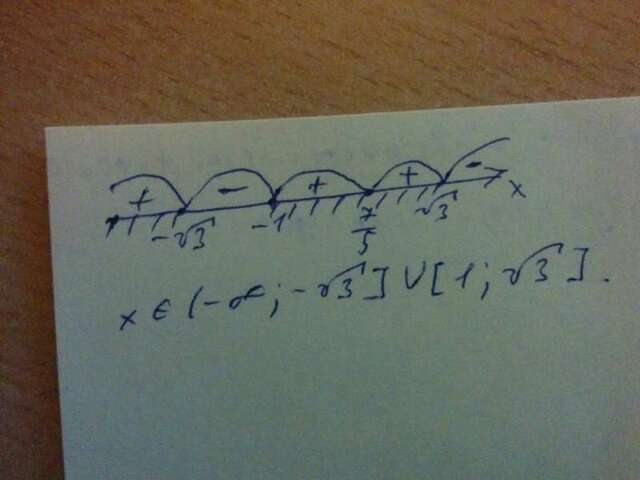 + - + + -
-√3 -1 7/5 √3 x
x ∈ (-∞; -√3] ∪ [1; √3].